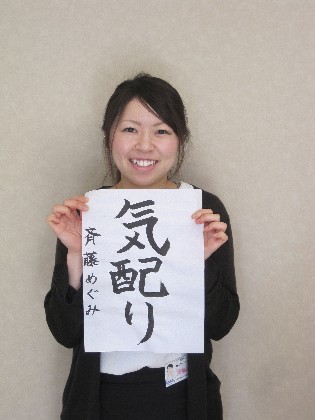 気配り
斉藤めぐみ